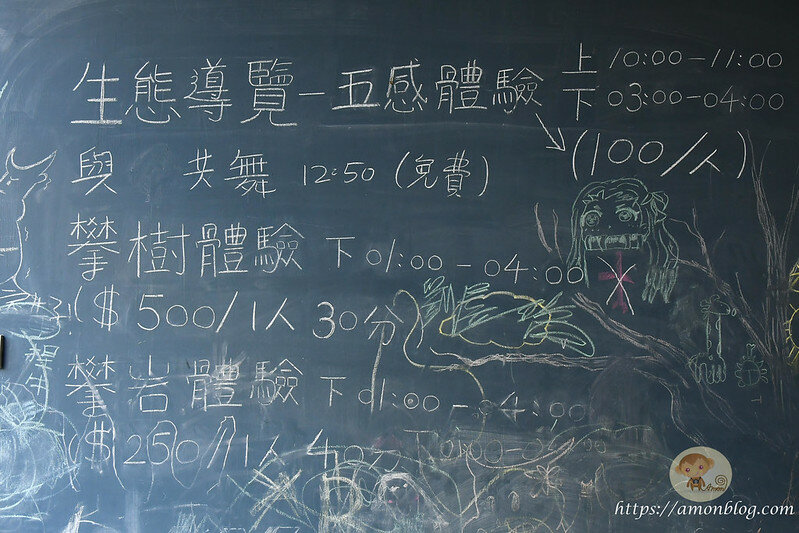 生態導覽-五感體驗 上 10:00-11:00
下 03:00-04:00
(100/人)
與 共舞 12:50 (免費)
攀樹體驗 下 01:00-04:00
($500/1人 30分
攀岩體驗 下 01:00-04:00
($250/1人
https://amonblog.com